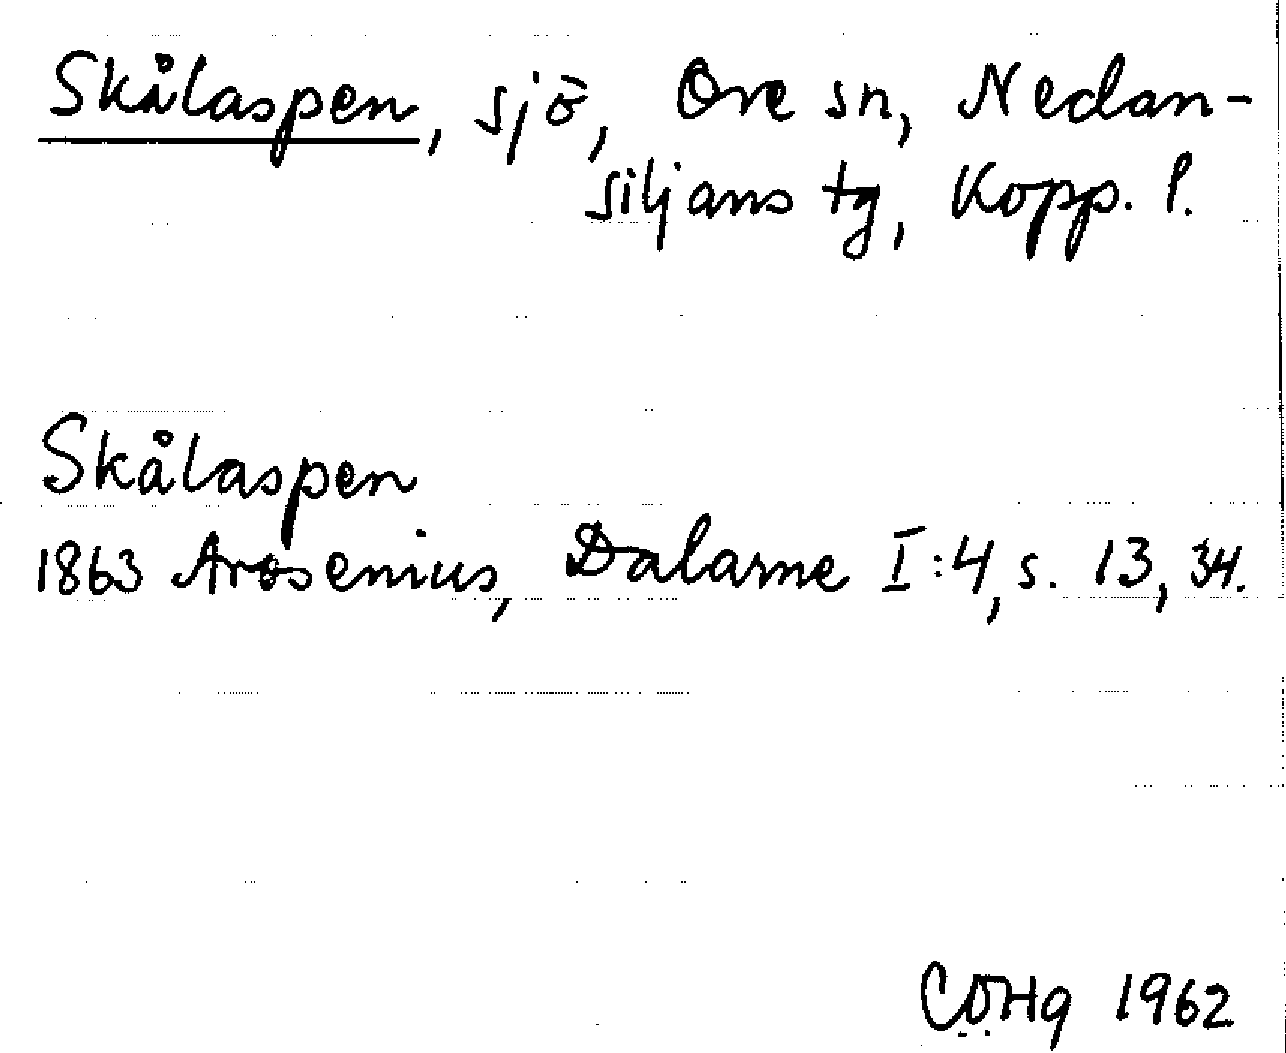 Skålaspen, sjö, Ore sn, Nedan-
siljans tg, Kopp. l.
Skålaspen
1863 Arosenius, Dalarne I:4, s. 13, 34.
CÖHg 1962